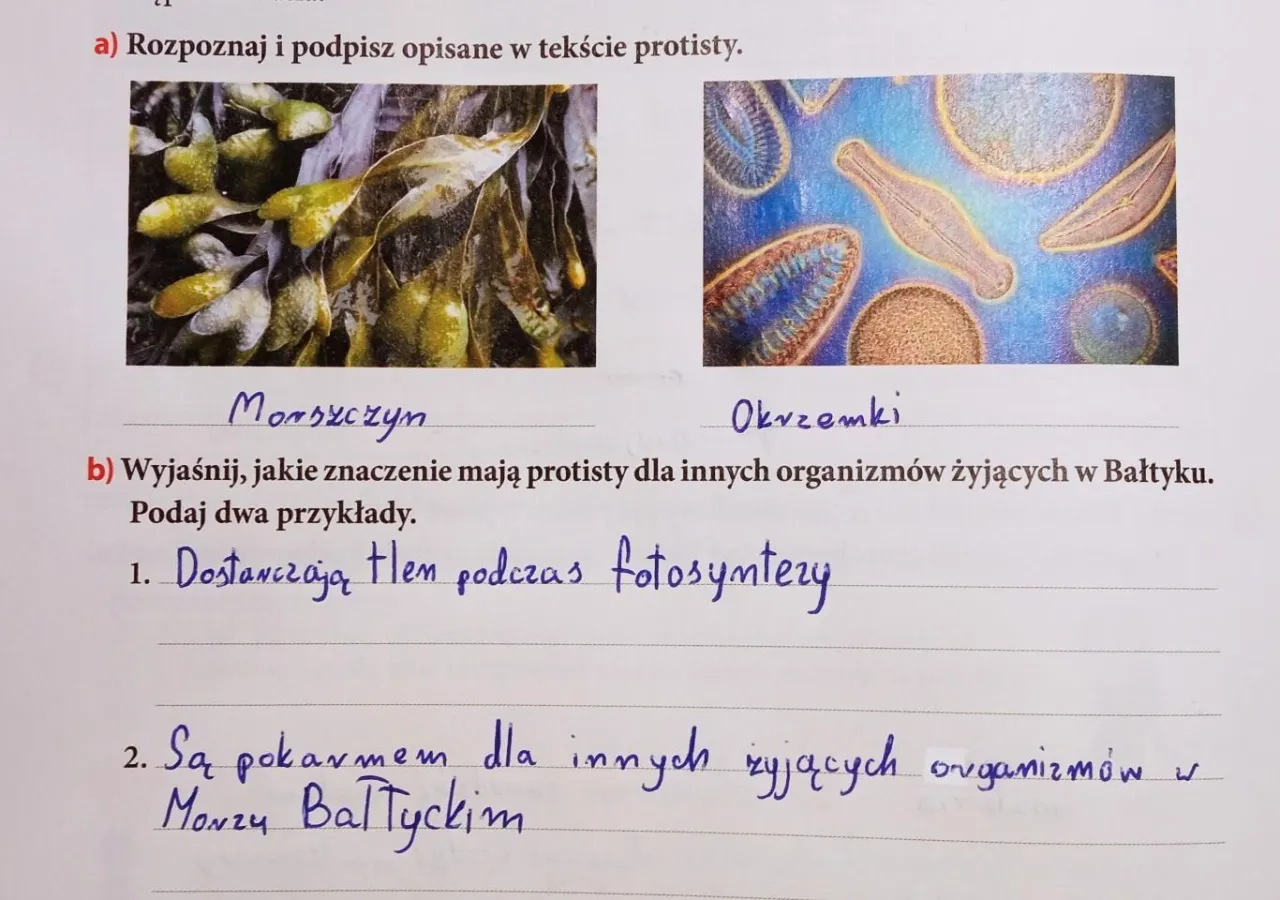 a) Rozpoznaj i podpisz opisane w tekście protisty.
Morszczyn
Okrzemki
b) Wyjaśnij, jakie znaczenie mają protisty dla innych organizmów żyjących w Bałtyku.
Podaj dwa przykłady.
1. Dostarczają tlen podczas fotosyntezy
2. Są pokarmem dla innych żyjących organizmów w
Morzu Bałtyckim